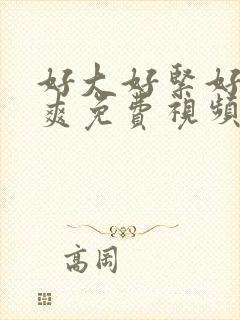 好大好緊好
爽免費視頻
高岡